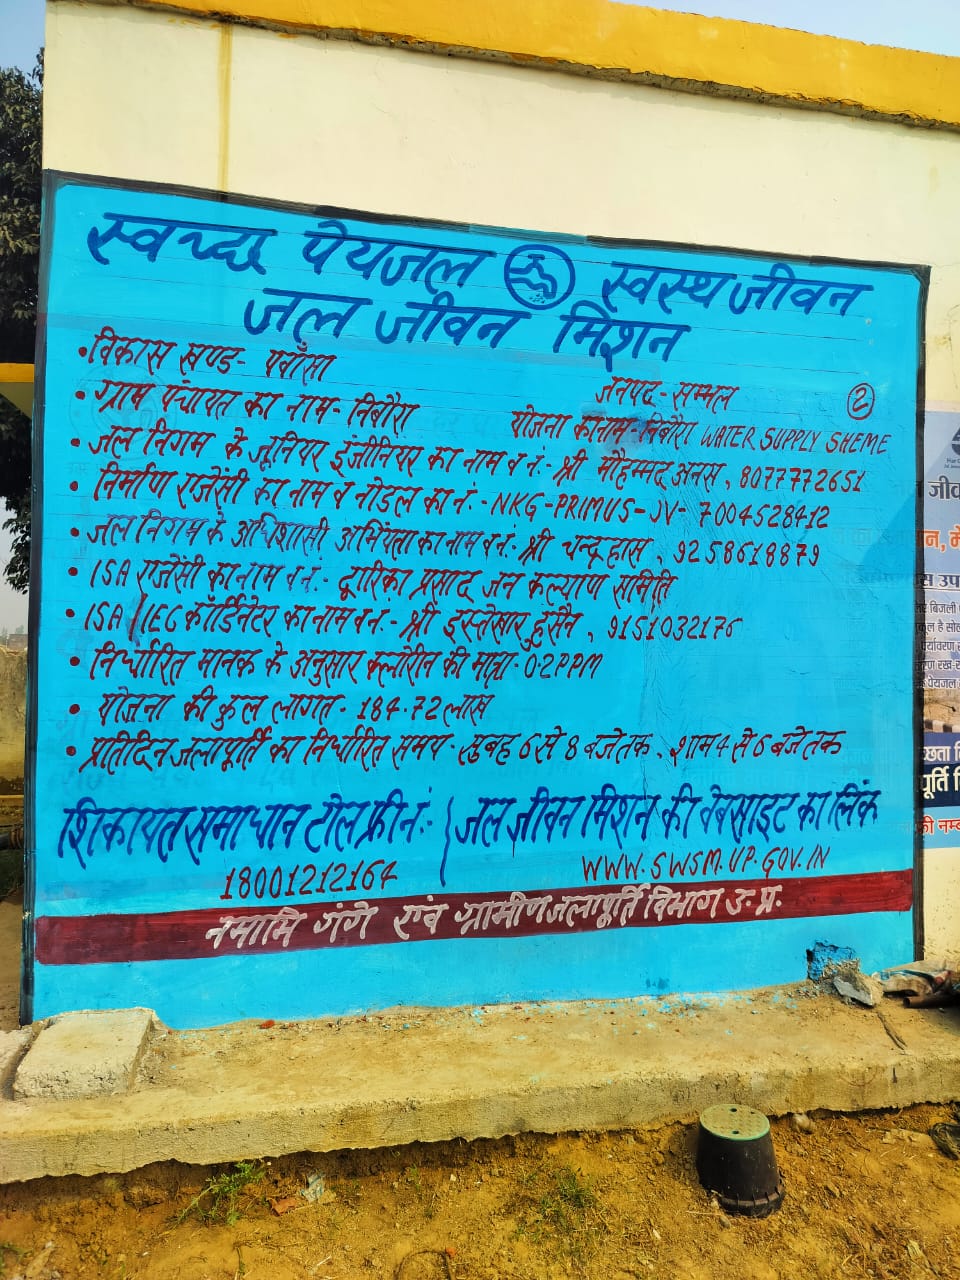 स्वच्छ पेयजल स्वस्थ जीवन
जल जीवन मिशन
•विकास खण्ड- पवाँसा
जनपद- सम्भल
②
•ग्राम पंचायत का नाम- निबौरा
योजना का नाम- निबौरा WATER SUPPLY SHEME
•जल निगम के जूनियर इंजीनियर का नाम व नं.- श्री मौहम्मद अनस, 8077772651
•निर्माण एजेंसी का नाम व नोडल का नं.- NKG-PRIMUS-JV- 7004528412
•जल निगम के अधिशासी अभियंता का नाम व नं.- श्री चन्द्रहास, 9258618879
•ISA एजेंसी का नाम व नं.- द्वारिका प्रसाद जन कल्याण समिति
•ISA/IEC कॉर्डिनेटर का नाम व नं.- श्री इस्तेखार हुसैन, 9151032176
•निर्धारित मानक के अनुसार क्लोरीन की मात्रा- 0.2PPM
•योजना की कुल लागत- 184.72 लाख
•प्रतिदिन जलापूर्ति का निर्धारित समय- सुबह 6 से 8 बजे तक. शाम 4 से 6 बजे तक
शिकायत समाधान टोल फ्री नं:-
18001212164
जल जीवन मिशन की वेबसाइट का लिंक
WWW.SWSM.UP.GOV.IN
नमामि गंगे एवं ग्रामीण जलापूर्ति विभाग उ.प्र.